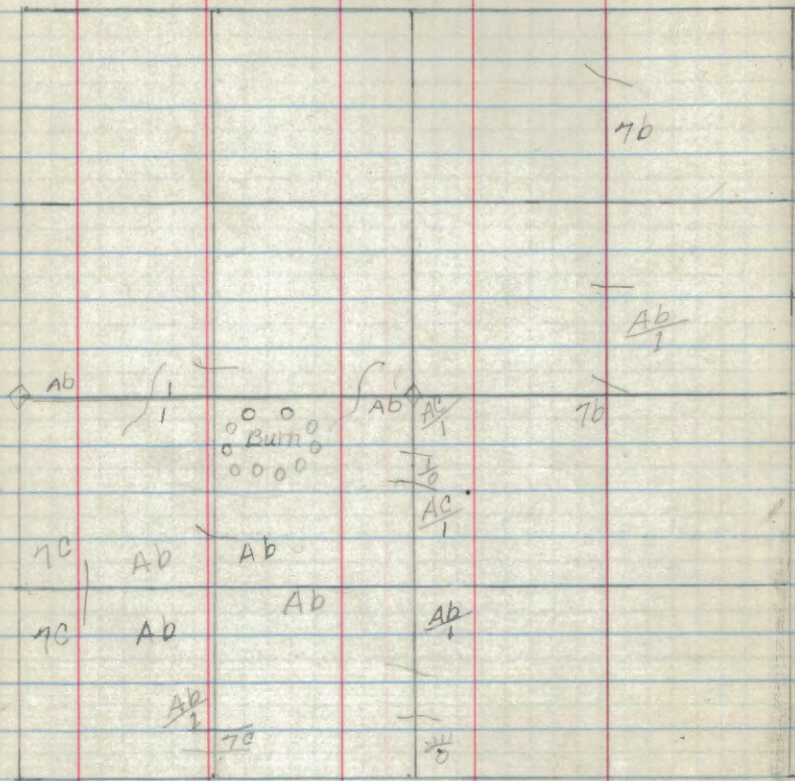 7b
Ab
1
Ab
1
1
Ab
AC
1
7b
Burn
1
0
AC
1
7C
Ab
Ab
Ab
7C
Ab
Ab
1
Ab
7C